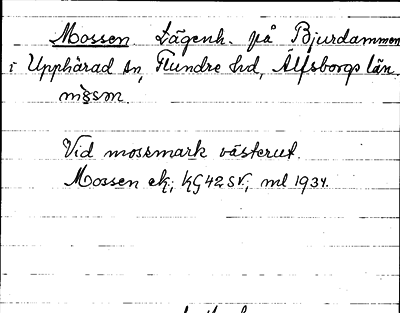 Mossen Lägenh. på Bjurdammen
i Upphärad sn, Flundre hd, Älfsborgs län.
Vid mossmark västerut.
Mossen ek; KG 42 SV; ml 1934.